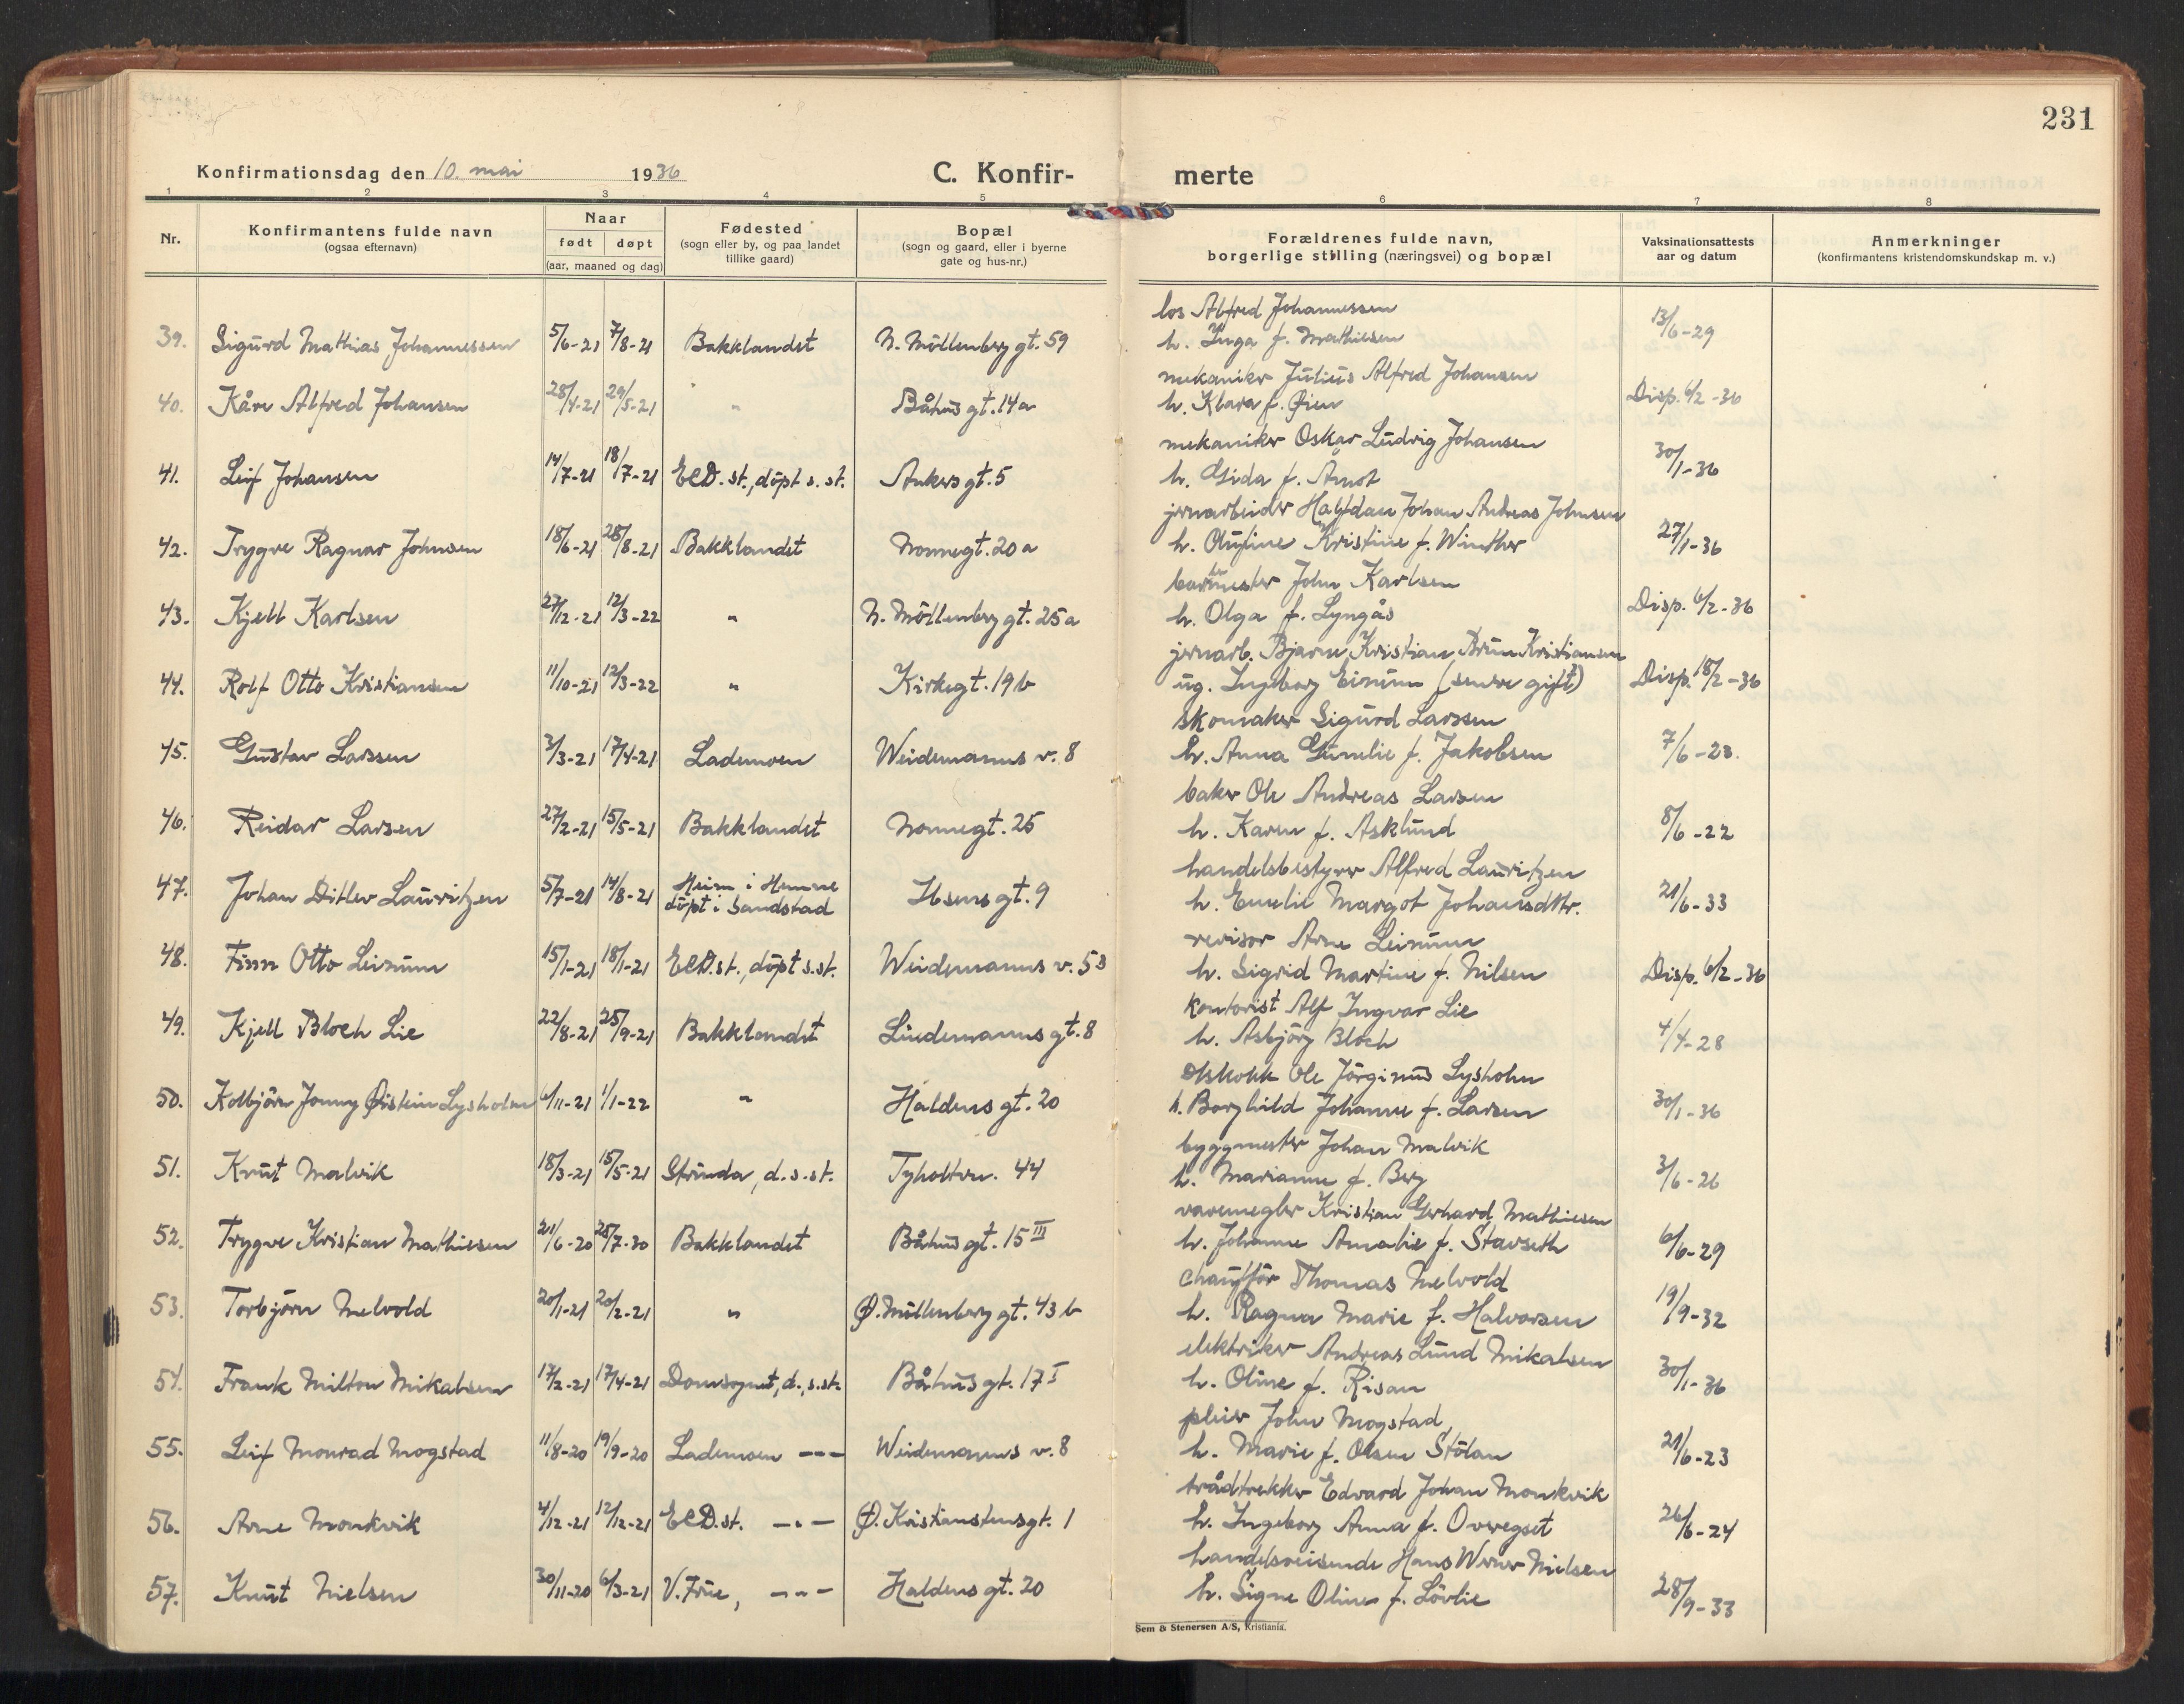 231
Konfirmationsdag den 10. mai 1936 C. Konfir- merte
1 2 3 4 5 6 7 8
Nr. Konfirmantens fulde navn (ogsaa efternavn) Naar født døpt (aar, maaned og dag) Fødested (sogn eller by, og paa landet tillike gaard) Bopæl (sogn og gaard, eller i byerne gate og hus-nr.) Forældrenes fulde navn, borgerlige stilling (næringsvei) og bopæl Vaksinationsattests aar og datum Anmerkninger (konfirmantens kristendomskundskap m. v.)
los Alfred Johannessen
39. Sigurd Mathias Johannessen 5/6-21 7/8-21 Bakklandet N. Möllenberg gt. 59 h. Inga f. Mathiesen 13/6-29
mekaniker Julius Alfred Johansen
40. Kåre Alfred Johansen 28/4-21 29/5-21 " Båhus gt. 14a h. Klara f. Øien Disp. 6/2-36
mekaniker Oskar Ludvig Johansen
41. Leif Johansen 14/7-21 18/7-21 ECD. st., döpt s. st. Ankers gt. 5 h. Gida f. Åmot 30/1-36
jernarbeider Halfdan Johan Andreas Johnsen
42. Trygve Ragnar Johnsen 18/6-21 28/8-21 Bakklandet Nonnegt. 20a h. Olufine Kristine f. Winther 27/1-36
John Karlsen
43. Kjell Karlsen 27/12-21 12/3-22 " N. Möllenberg gt. 25a h. Olga f. Lyngås Disp. 6/2-36
jernarb. Bjarne Kristian Brun Kristiansen
44. Rolf Otto Kristiansen 11/10-21 12/3-22 " Kirkegt. 19b ug. Ingeborg Einum (senere gift) Disp. 18/2-36
skomaker Sigurd Larssen
45. Gustav Larssen 3/3-21 17/4-21 Lademoen Weidemanns v. 8 h. Anna Gunelie f. Jakobsen 7/6-23.
baker Ole Andreas Larsen
46. Reidar Larsen 27/2-21 15/5-21 Bakklandet Nonnegt. 25 h. Karen f. Asklund 8/6-22
handelsbestyrer Alfred Lauritzen
47. Johan Ditlev Lauritzen 5/7-21 14/8-21 Heim i Hemne döpt i Sandstad Ibsens gt. 9 h. Emelie Margot Johansdttr. 21/6-33
revisor Arne Leinum
48. Finn Otto Leinum 15/1-21 18/1-21 ECD.st., döpt s.st. Weidemanns v. 53 h. Sigrid Martine f. Nilsen Disp. 6/2-36
kontorist Alf Ingvar Lie
49. Kjell Bloch Lie 22/8-21 25/9-21 Bakklandet Lindemanns gt. 8 h. Asbjörg Bloch 4/4-28
Ole Jörginus Lysholm
50. Kolbjörn Jonny Øistein Lysholm 6/11-21 1/1-22 " Haldens gt. 20 h. Borghild Johanne f. Larsen 30/1-36
byggmester Johan Malvik
51. Knut Malvik 18/3-21 15/5-21 Strinda, d. s. st. Tyholtvn. 44 h. Marianne f. Berg 3/6-26
varemegler Kristian Gerhard Mathiesen
52. Trygve Kristian Mathiesen 21/6-20 25/7-20 Bakklandet Båhus gt. 15 III h. Johanne Amalie f. Stavseth 6/6-29
chaufför Thomas Melvold
53. Torbjörn Melvold 20/1-21 20/2-21 " Ø. Möllenberg gt. 43b h. Ragna Marie f. Halvorsen 19/9-32
elektriker Andreas Lund Mikalsen
54. Frank Milton Mikalsen 17/2-21 17/4-21 Domsognet, d., s.st. Båhus gt. 17 I h. Oline f. Risan 30/1-36
pleier John Mogstad
55. Leif Monrad Mogstad 11/8-20 19/9-20 Lademoen --- Weidemanns v. 8 h. Marie f. Olsen Stölan 21/6-23
trådtrekker Edvard Johan Monkvik
56. Arne Monkvik 4/12-21 12/12-21 ECD.st. -.- Ø. Kristianstensgt. 1 h. Ingeborg Anna f. Overegset 26/6-24
handelsreisende Hans Werner Nielsen
57. Knut Nielsen 30/11-20 6/3-21 V. Frue, --- Haldens gt. 20 h. Signe Oline f. Lövlie 28/9-33
Sem & Stenersen A/S, Kristiania.